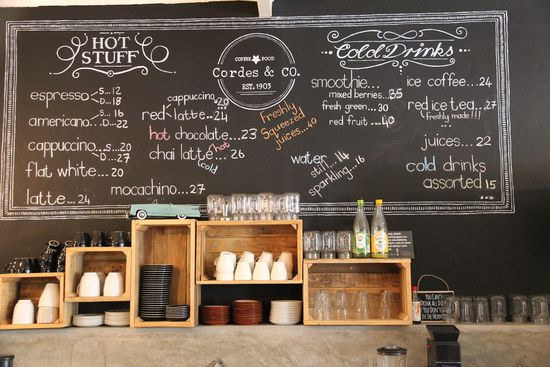 HOT
STUFF
espresso S...12
D...18
americano S...16
D...22
cappuccino S...20
D...27
flat white...20
latte...24
cappuccino
red 20
latte...24
hot chocolate...23
chai latte hot...26
cold
mochacino...27
COFFEE FOOD
Cordes & CO.
EST. 1903
Freshly
Squeezed
juices...40
water
still...14
sparkling...16
Cold Drinks
smoothie...
mixed berries...35
fresh green...30
red fruit...40
ice coffee...24
red ice tea...27
freshly made!!!
juices...22
cold drinks
assorted 15
YOU CAN'T
DRINK ALL DAY